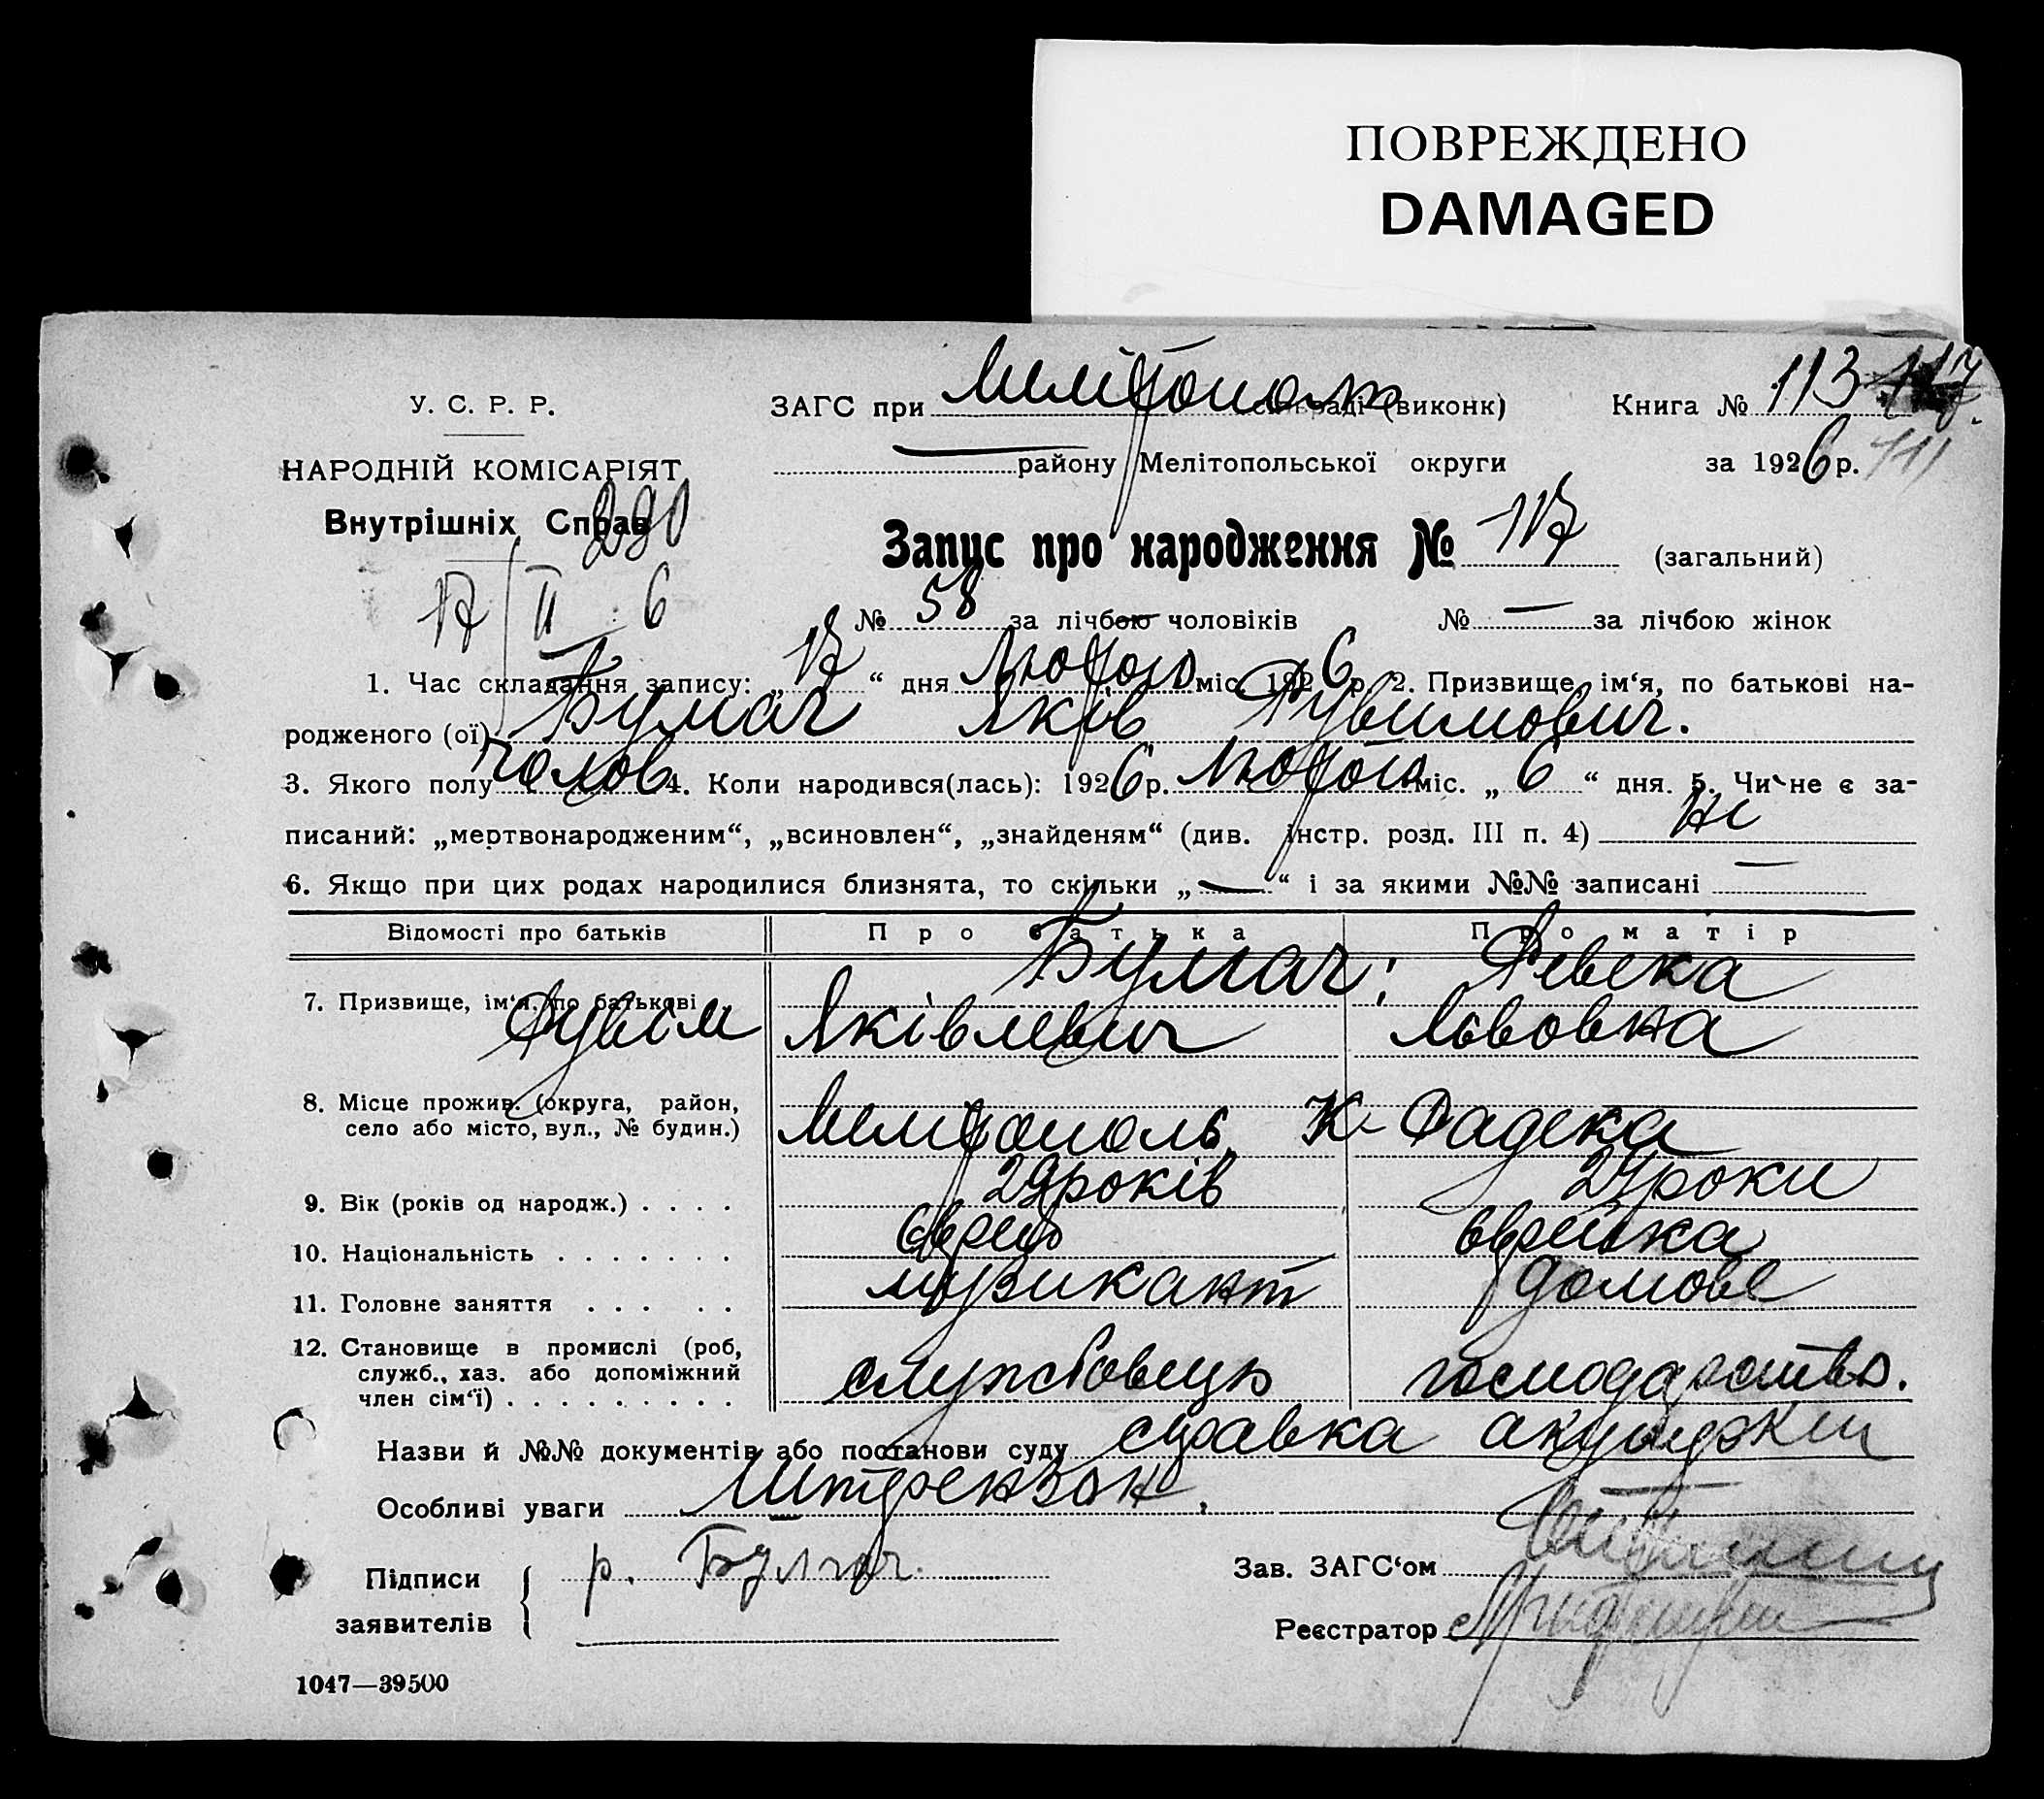 ПОВРЕЖДЕНО
DAMAGED
У. С. Р. Р.
ЗАГС при Мелітополь сільраді (виконк)
Книга № 113 117
НАРОДНІЙ КОМІСАРІЯТ
— району Мелітопольської округи
за 1926 р. 111
Внутрішніх Справ
Запис про народження № 117 (загальний)
17/II 6
№ 58 за лічбою чоловіків № — за лічбою жінок
1. Час складання запису: „17“ дня Лютого міс. 1926 р. 2. Призвище, ім‘я, по батькові на-
родженого (ої) Бумаг Яків Рувимович.
3. Якого полу чолов 4. Коли народився(лась): 1926 р. Лютого міс. „6“ дня. 5. Чи не є за-
писаний: „мертвонародженим“, „всиновлен“, „знайденям“ (див. інстр. розд. III п. 4) Ні
6. Якщо при цих родах народилися близнята, то скільки „—“ і за якими №№ записані —
Відомості про батьків Про батька Про матір
7. Призвище, ім‘я, по батькові Бумаг; Ревека
Рувім Яківлевич Львовна
8. Місце прожив. (округа, район,
село або місто, вул., № будин.) Мелітополь, К- Радека
9. Вік (років од народж.) . . . . 29 років 24 роки
10. Національність . . . . . . . Єврей єврейка
11. Головне заняття . . . . . музикант домове
12. Становище в промислі (роб,
служб., хаз. або допоміжний
член сім‘ї) . . . . . . . . . службовець господарство.
Назви й №№ документів або постанови суду справка акушерки
Особливі уваги Штрензон,
Підписи
заявителів
р. Бумаг.
Зав. ЗАГС‘ом
Реєстратор
1047—39500